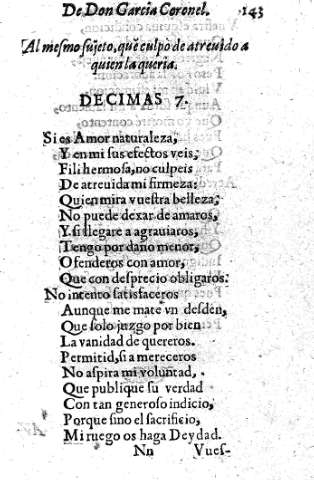 De Don Garcia Coronel. 143
Al mesmo sujeto, que culpò de atreuido a
quien la queria.
DECIMAS 7.
Si es Amor naturaleza,
Y en mi sus efectos veis,
Fili hermosa, no culpeis
De atreuida mi firmeza:
Quien mira vuestra belleza,
No puede dexar de amaros,
Y si llegare a agrauiaros,
Tengo por daño menor,
Ofenderos con amor,
Que con desprecio obligaros.
No intento satisfaceros
Aunque me mate vn desden,
Que solo juzgo por bien
La vanidad de quereros.
Permitid, si a mereceros
No aspira mi voluntad,
Que publique su verdad
Con tan generoso indicio,
Porque sino el sacrificio,
Mi ruego os haga Deydad.
Nn Vues-